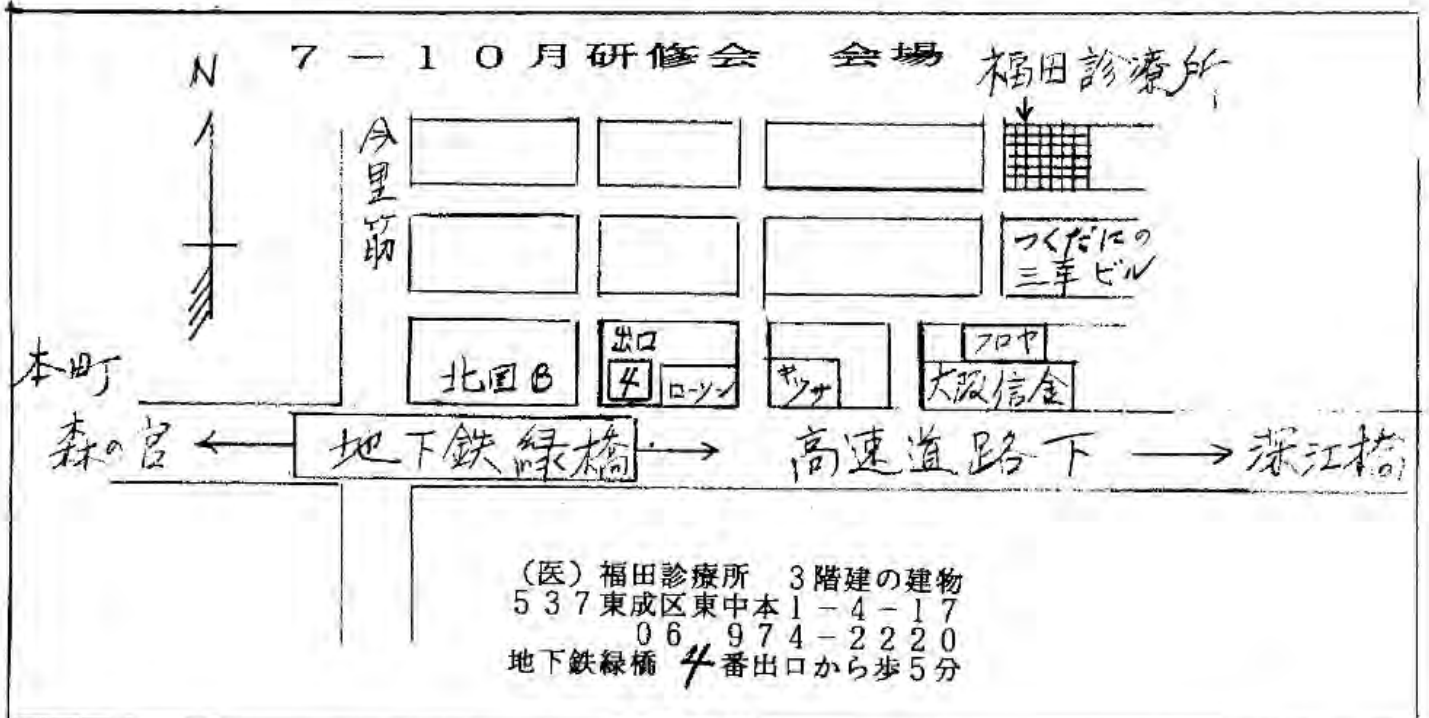 7－10月研修会　会場
N
福田診療所
今里筋
つくだにの
三幸ビル
出口
4
北国B
ローソン
キッサ
フロヤ
大阪信金
本町
森の宮
地下鉄緑橋
高速道路下
深江橋
（医）福田診療所　3階建の建物
537東成区東中本1－4－17
06　974－2220
地下鉄緑橋　4番出口から歩5分